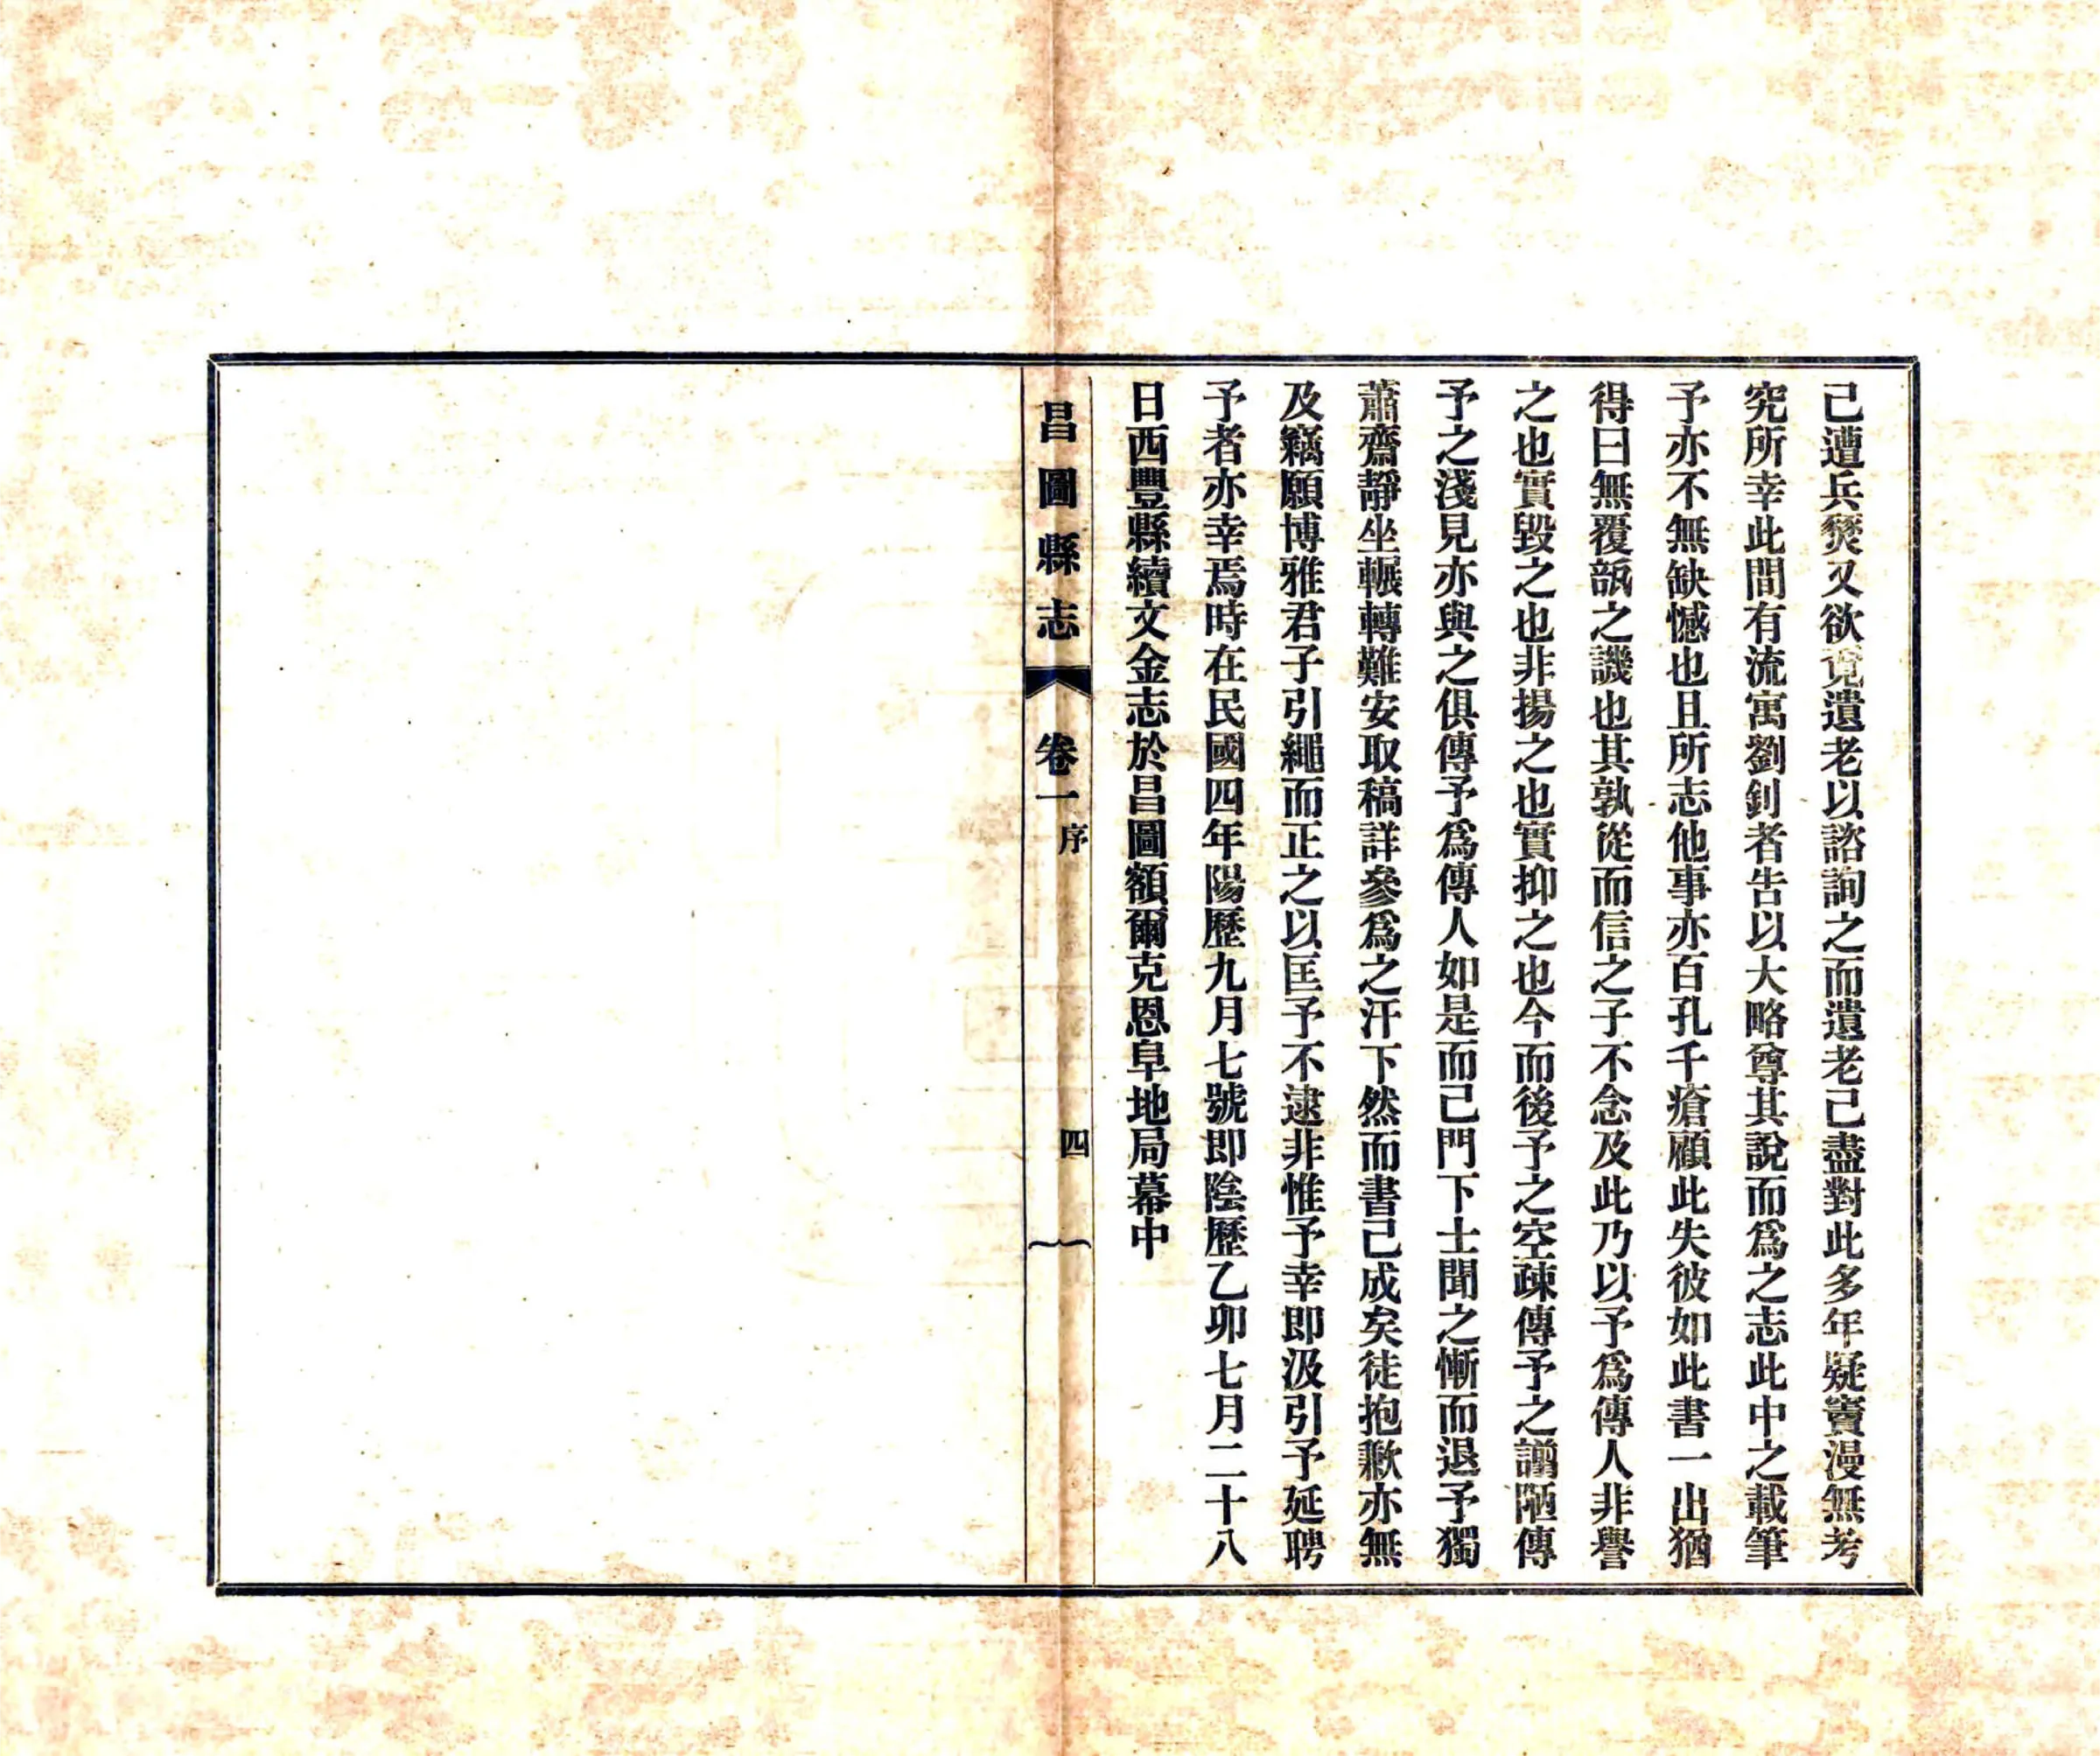 己遭兵燹又欲覓遺老以諮詢之而遺老己盡對此多年疑竇漫無考
究所幸此間有流寓劉釗者告以大略尊其說而爲之志此中之載筆
予亦不無缺憾也且所志他事亦百孔千瘡顧此失彼如此書一出猶
得曰無覆瓿之譏也其孰從而信之子不念及此乃以予爲傳人非譽
之也實毀之也非揚之也實抑之也今而後予之空疎傳予之譾陋傳
予之淺見亦與之俱傳予爲傳人如是而己門下士聞之慚而退予獨
蕭齋靜坐輾轉難安取稿詳參爲之汗下然而書己成矣徒抱歉亦無
及竊願博雅君子引繩而正之以匡予不逮非惟予幸即汲引予延聘
予者亦幸焉時在民國四年陽歷九月七號即陰歷乙卯七月二十八
日西豐縣續文金志於昌圖額爾克恩阜地局幕中
昌圖縣志 卷一 序 四